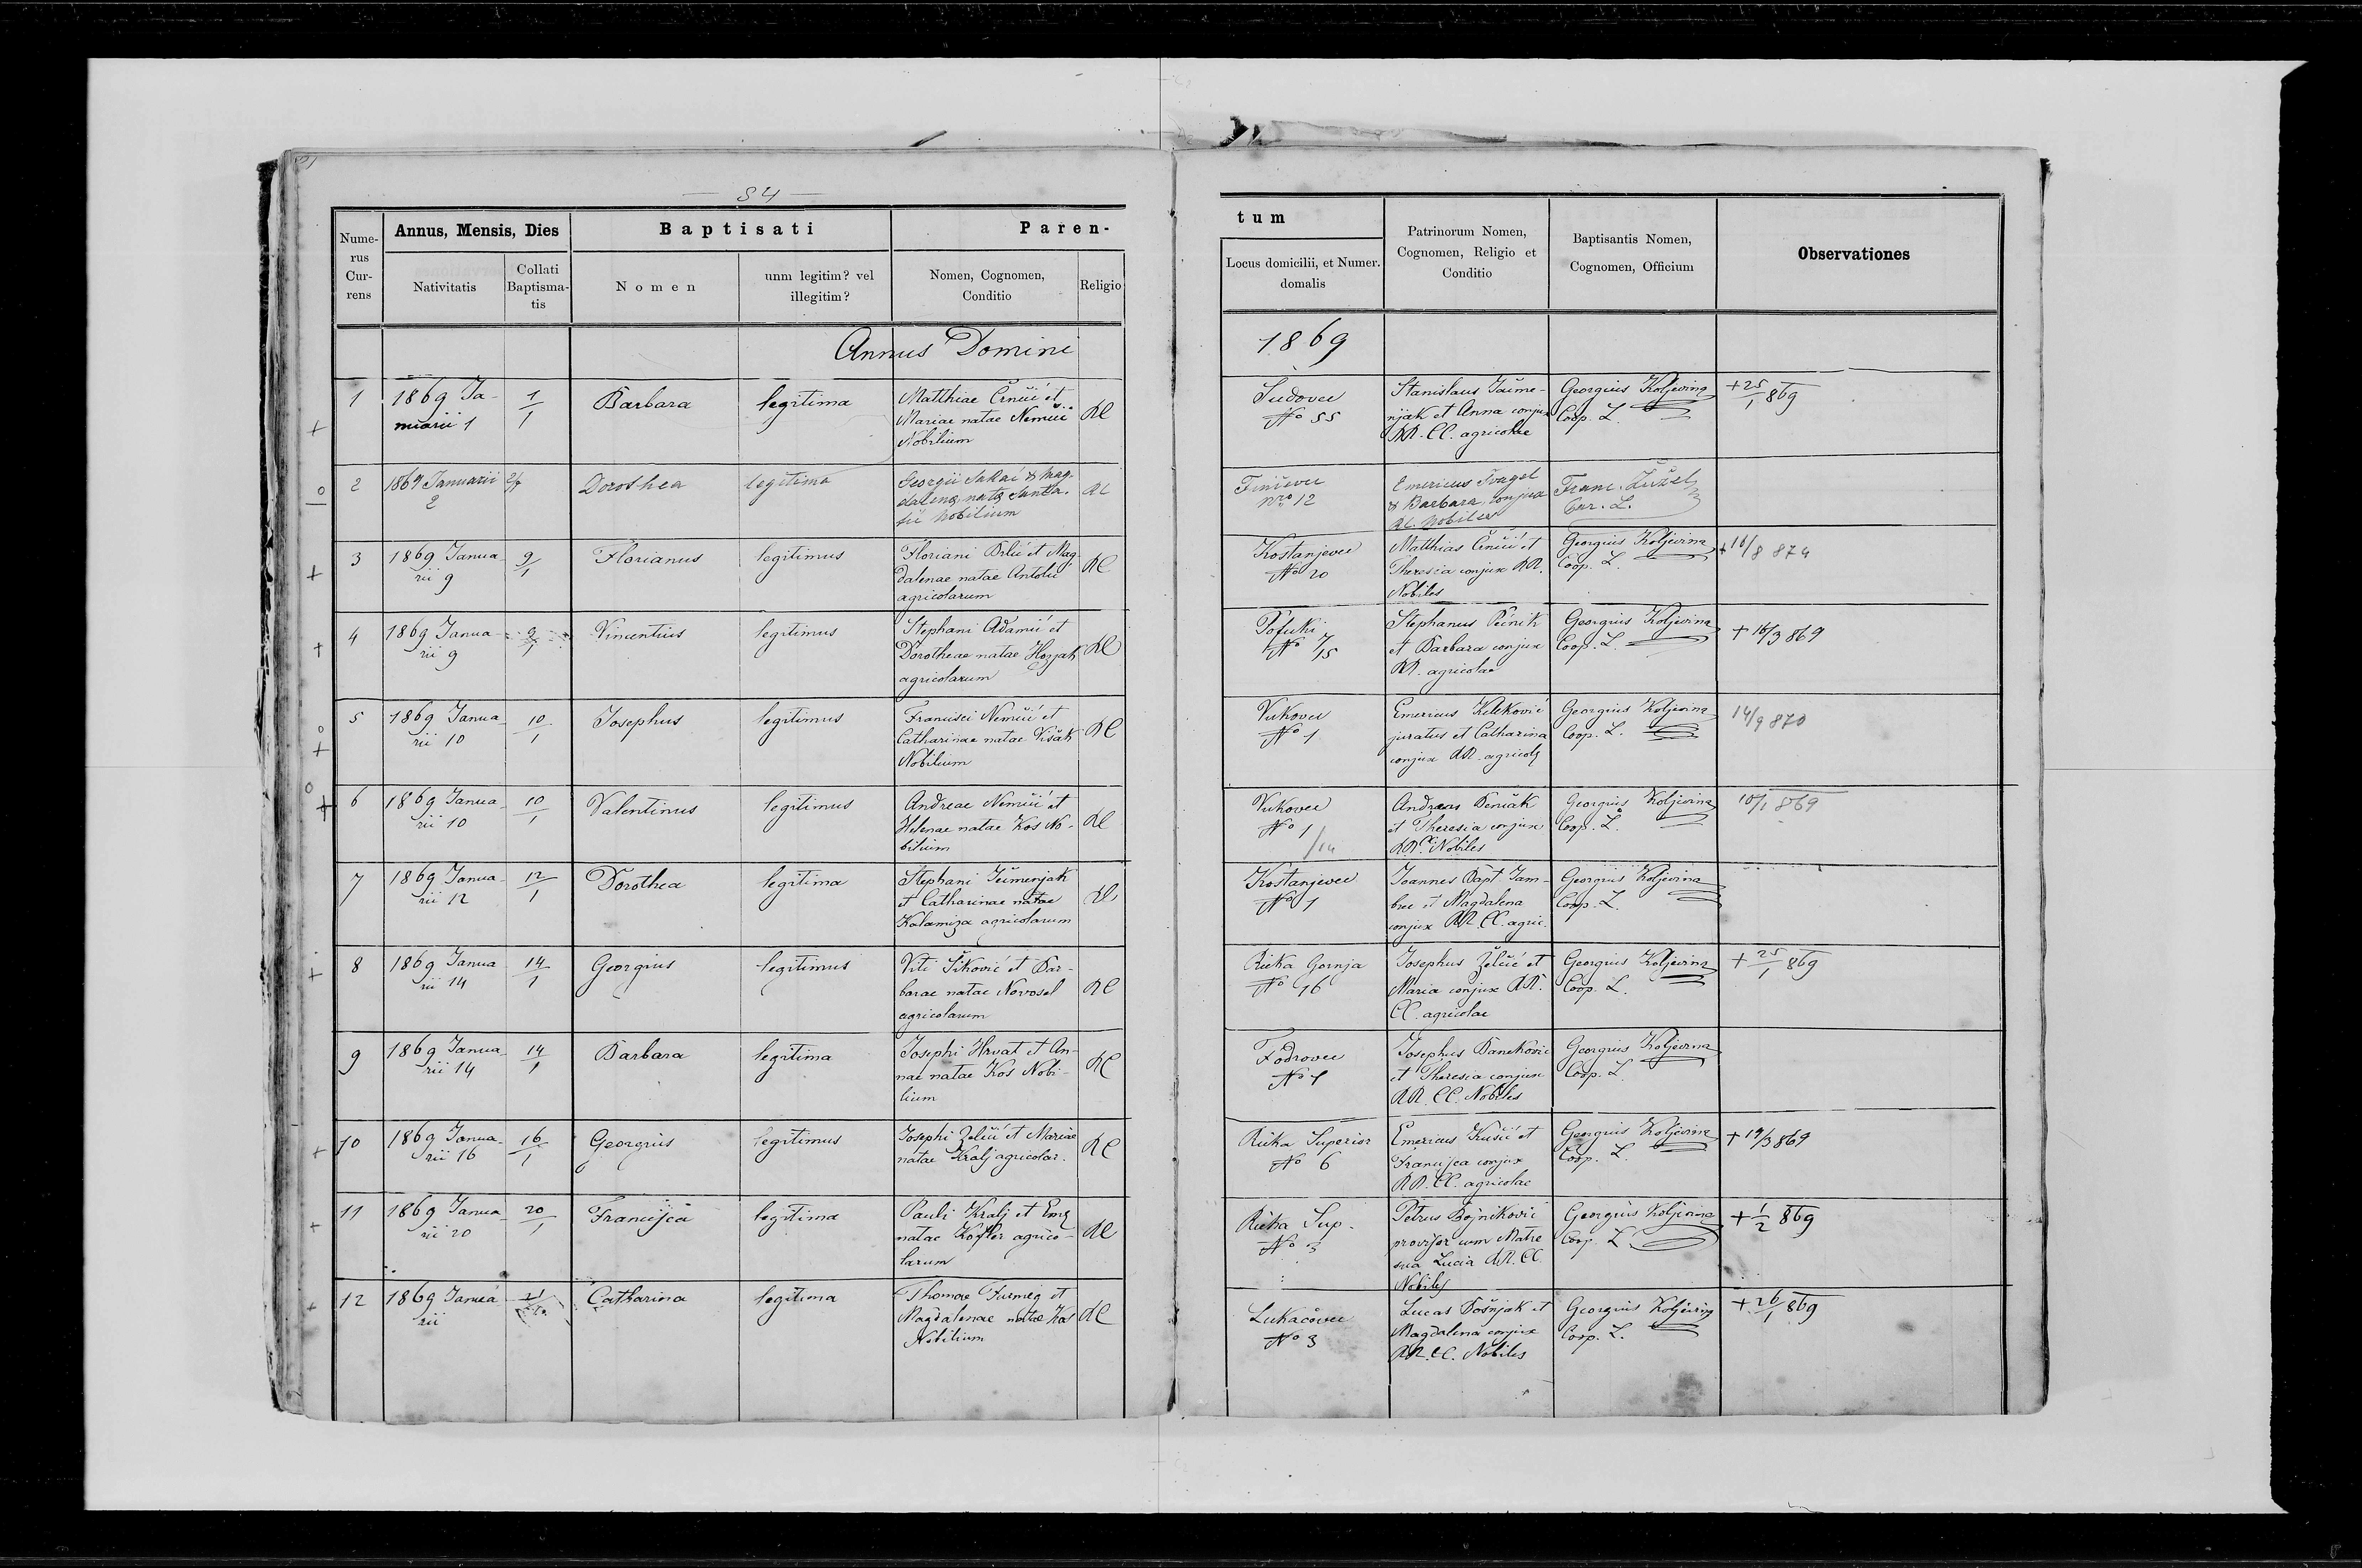 84
Annus, Mensis, Dies
Baptisati
Paren-
Nume-
rus
Cur-
rens
Nativitatis
Collati
Baptisma-
tis
Nomen
unm legitim? vel
illegitim?
Nomen, Cognomen,
Conditio
Religio
tum
Locus domicilii, et Numer.
domalis
Patrinorum Nomen,
Cognomen, Religio et
Conditio
Baptisantis Nomen,
Cognomen, Officium
Observationes
Annus Domini 1869
1
1869 Ja-
nuarii 1
1/1
Barbara
legitima
Matthiae Črnčić et
Mariae natae Nemčić
Nobilium
RC
Sudovec
No 55
Stanislaus Jačme-
njak et Anna conjux
RR. CC. agricolae
Georgius Koljevina
Coop. L.
+ 25/1 869
2
1869 Januarii
2
2/1
Dorothea
legitima
Georgii Sakač & Mag-
dalenę natę
Nobilium
RC
Finičevec
Nro 12
Emericus Švagel
& Barbara conjux
RC. Nobiles
Franc. Žužel
Curr. L.
3
1869 Janua-
rii 9
9/1
Florianus
legitimus
Floriani Brlić et Mag-
dalenae natae Antolić
agricolarum
RC
Kostanjevec
No 20
Matthias Črnčić et
Theresia conjux RR.
Nobiles
Georgius Koljevina
Coop. L.
+ 16/8 874
4
1869 Janua-
rii 9
9/1
Vincentius
legitimus
Stephani Adamić et
Dorotheae natae Hozjak
agricolarum
RC
Pofuki
No 7/15
Stephanus Pčinik
et Barbara conjux
RR. agricolae
Georgius Koljevina
Coop. L.
+ 16/3 869
5
1869 Janua-
rii 10
10/1
Josephus
legitimus
Francisci Nemčić et
Catharinae natae Višak
Nobilium
RC
Vukovec
No 1
Emericus Keleković
juratus et Catharina
conjux RR. agricolę
Georgius Koljevina
Coop. L.
14/9 870
6
1869 Janua-
rii 10
10/1
Valentinus
legitimus
Andreae Nemčić et
Helenae natae Kos No-
bilium
RC
Vukovec
No 1/14
Andreas Benčak
et Theresia conjux
RR. Nobiles
Georgius Koljevina
Coop. L.
10/1 869
7
1869 Janua-
rii 12
12/1
Dorothea
legitima
Stephani Ječmenjak
et Catharinae natae
Kalamiza agricolarum
RC
Kostanjevec
No 1
Joannes Bapt Jam-
brec et Magdalena
conjux RR CC. agric.
Georgius Koljevina
Coop. L.
8
1869 Janua-
rii 14
14/1
Georgius
legitimus
Viti Šiković et Bar-
barae natae Novosel
agricolarum
RC
Rieka Gornja
No 16
Josephus Zelčić et
Maria conjux RR.
CC. agricolae
Georgius Koljevina
Coop. L.
+ 25/1 869
9
1869 Janua-
rii 14
14/1
Barbara
legitima
Josephi Hrvat et An-
nae natae Kos Nobi-
lium
RC
Fodrovec
No 1
Josephus Baneković
et Theresia conjux
RR. CC. Nobiles
Georgius Koljevina
Coop. L.
10
1869 Janua-
rii 16
16/1
Georgius
legitimus
Josephi Zelčić et Mariae
natae Kralj agricolar.
RC
Rieka Superior
No 6
Emericus Kušić et
Francisca conjux
RR. CC. agricolae
Georgius Koljevina
Coop. L.
+ 19/3 869
11
1869 Janua-
rii 20
20/1
Francisca
legitima
Pauli Kralj et Emę
natae Kofler agrico-
larum
RC
Rieka Sup.
No 3
Petrus Bojniković
provisor cum Matre
sua Lucia RR. CC.
Nobiles
Georgius Koljevina
Coop. L.
+ 1/2 869
12
1869 Janua-
rii
21/1
Catharina
legitima
Thomae Furmeg et
Magdalenae natae Kos
Nobilium
RC
Lukačovec
No 3
Lucas Pošnjak et
Magdalena conjux
RR. CC. Nobiles
Georgius Koljevina
Coop. L.
+ 26/1 869